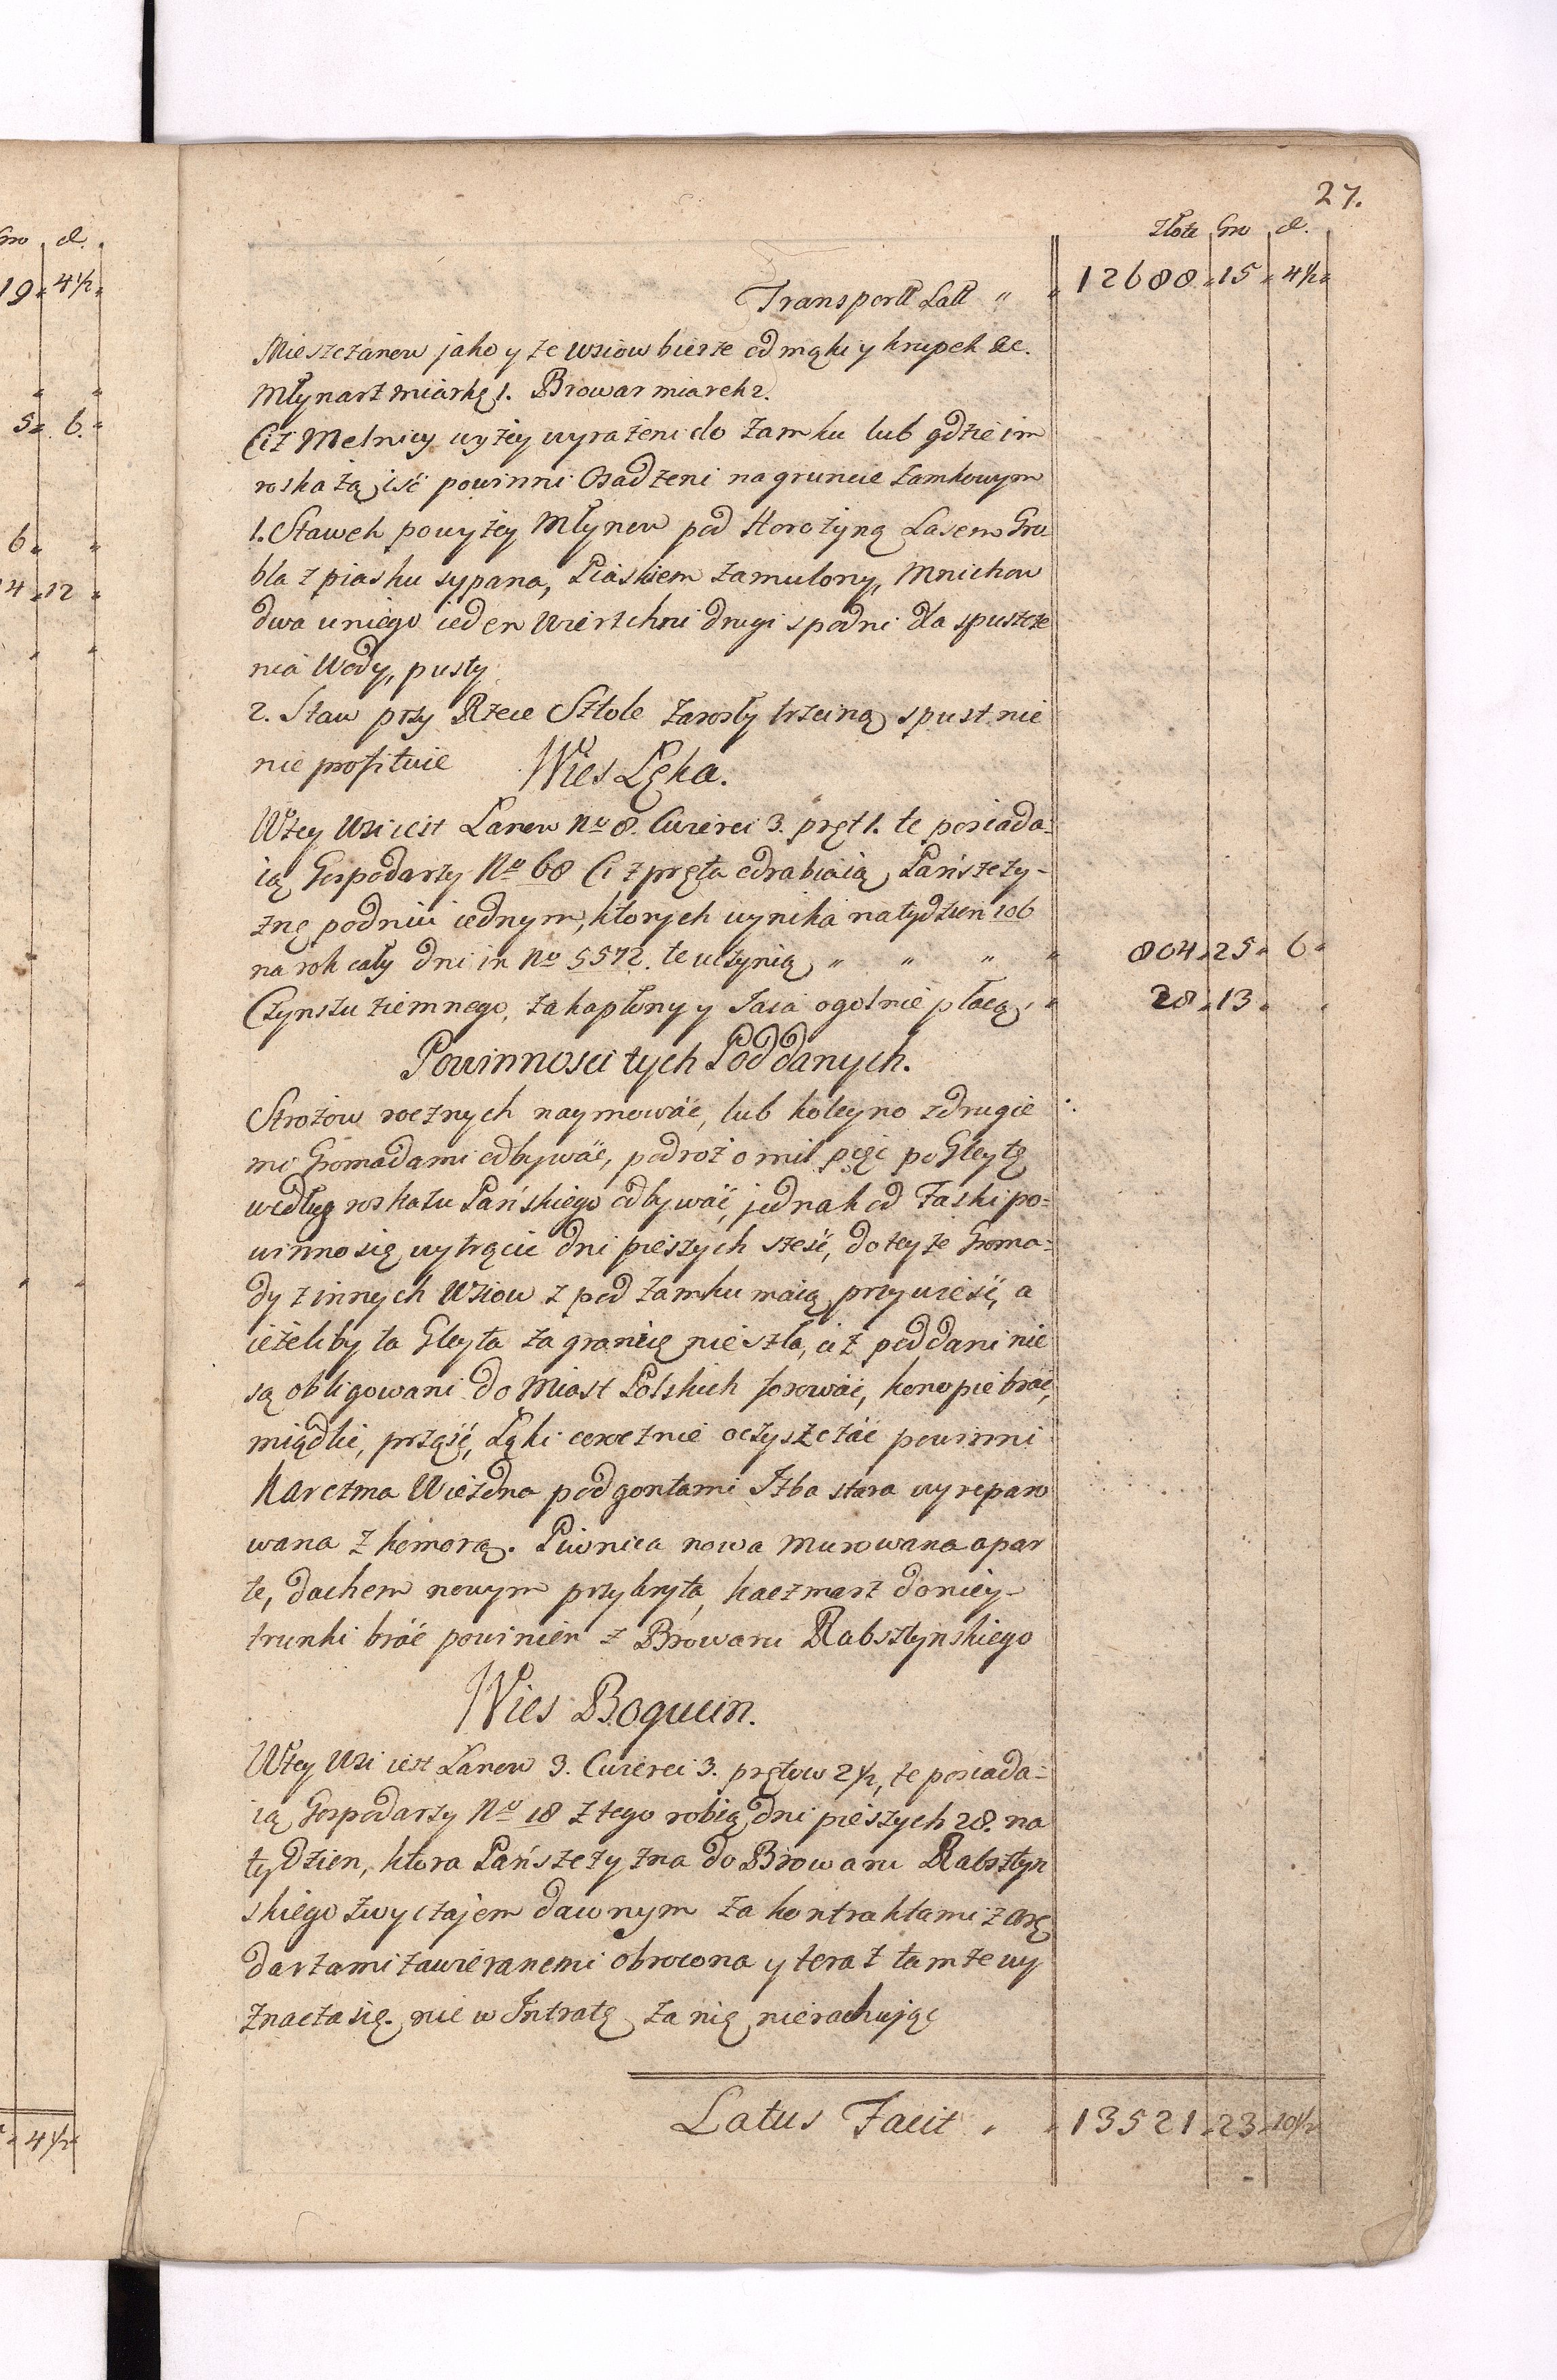 27.
Złote Gro d.
Transportt Latt " " 12688 " 15 " 4½ "
Mieszczanow jako y ze wsiow bierze od mąki y krupek &c.
Młynarz miarkę 1. Browar miarek 2.
Ciż Melnicy wyżey wyrażeni do Zamku lub gdzie im
roskażą iść powinni Osadzeni na gruncie zamkowym
1. Stawek powyżey Młynow pod Horożyną Lasem Gro
bla z piasku sypana, Piaskiem zamulony, Mnichow
dwa u niego ieden Wierzchni drugi spodni dla spuszcze
nia Wody, pusty
2. Staw przy Rzece Sztole zarosły trzciną spust nie
nie profituie Wies Lęka.
W tey Wsi iest Lanow No 8. Cwierci 3. pręt 1. te posiada=
ią Gospodarzy No 68 Ci z pręta odrabiaią Pańszczy-
znę po dniu iednym, ktorych wynika na tydzien 106
na rok cały dni in No 5572. te uczynią " " " " 804 " 25 " 6 "
Czynszu ziemnego, za kapłony y Jaia ogolnie płacą " " 28 " 13 " "
Powinnosci tych Poddanych.
Strożow rocznych naymować, lub koleyno z drugie
mi Gromadami odbywać, podroż o mil pięć po Gleytę
według roskazu Pańskiego odbywać, jednak od Taski po=
winno się wytrącić dni pieszych sześć, do teyże Groma=
dy z innych Wsiow z pod Zamku maią przywieść, a
ieżeliby ta Gleyta za granicę nie szła, ciż poddani nie
są obligowani do Miast Polskich forować, konopie brać,
miądlić, prząść, Łąki corocznie oczyszczać powinni
Karczma Wiezdna pod gontami Izba stara wyreparo
wana z komorą. Piwnica nowa murowana apar
te, dachem nowym przykryta, kaczmarz do niey
trunki brać powinien z Browaru Rabsztynskiego
Wies Bogucin.
W tey Wsi iest Lanow 3. Cwierci 3. prętow 2½, te posiada=
ią Gospodarzy No 18 z tego robią dni pieszych 28. na
tydzien, ktora Pańszczyzna do Browaru Rabsztyn
skiego zwyczajem dawnym za kontraktami z arę
darzami zawieranemi obrocona y teraz tamże wy
znacza się. nic w Intratę za nią nierachując
Latus Facit " " 13521 " 23 " 10½ "
Gro d.
19 " 4½ "
" "
5 " 6 "
6 " "
4 " 12 "
" "
" "
" 4½ "